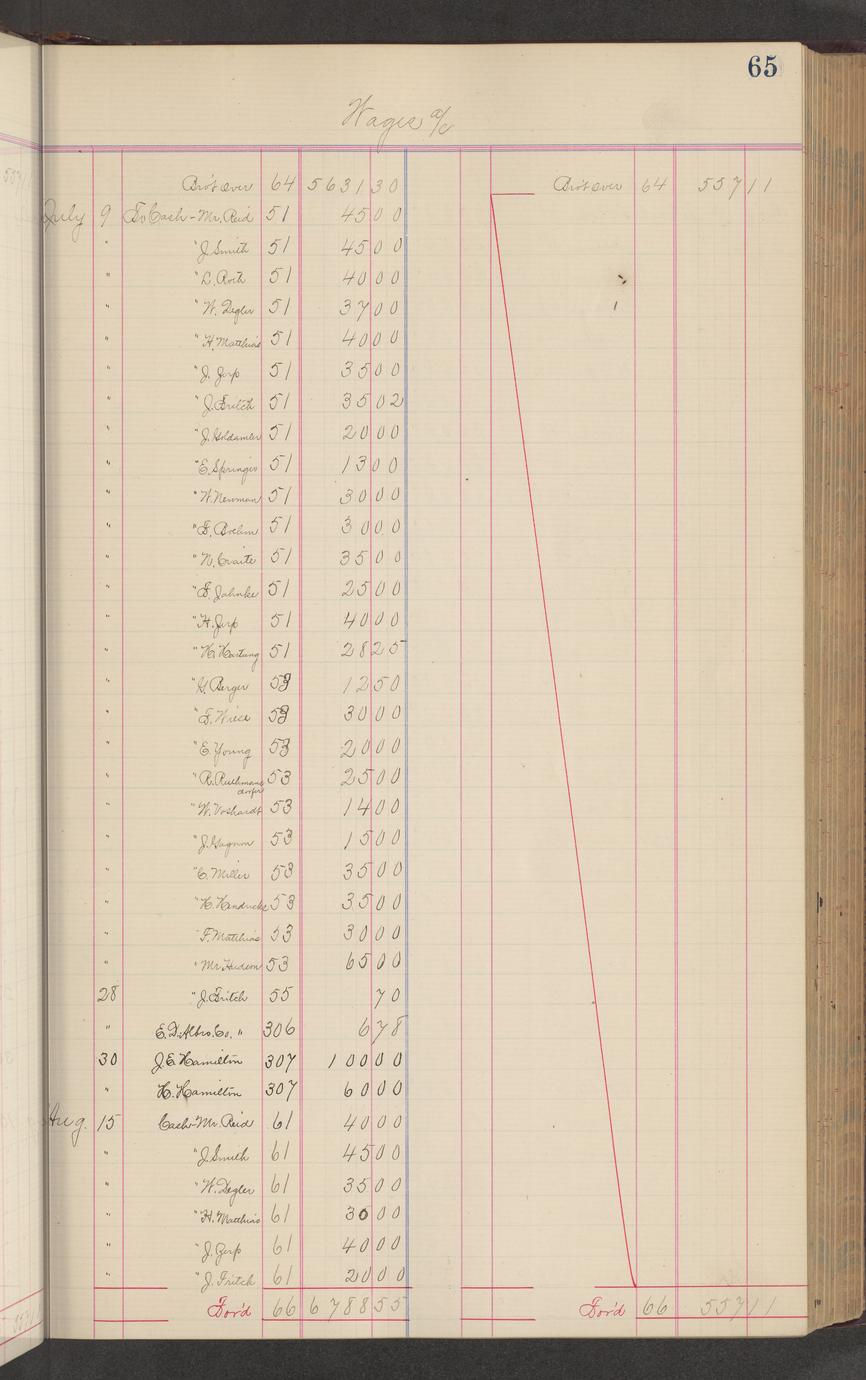 65
Wages a/c
Bro't Over 64 5631 30 Bro't Over 64 557 11
July 9 To Cash - Mr. Reid 51 45 00
" " J. Smith 51 45 00
" " L. Roth 51 40 00
" " W. Degler 51 37 00
" " H. Matthias 51 40 00
" " J. Jerp 51 35 00
" " J. Fritch 51 35 02
" " J. Goldamler 51 20 00
" " E. Springer 51 13 00
" " W. Newman 51 30 00
" " F. Brehm 51 30 00
" " N. Craite 51 35 00
" " F. Jahnke 51 25 00
" " H. Jerp 51 40 00
" " H. Hartung 51 28 25
" " G. Berger 53 12 50
" " F. Wiese 53 30 00
" " E. Young 53 20 00
" " R. Ruthmans
dorfer 53 25 00
" " W. Voshardt 53 14 00
" " J. Gagnon 53 15 00
" " C. Miller 53 35 00
" " H. Hendricks 53 35 00
" " F. Matthias 53 30 00
" " Mr Hudson 53 65 00
28 " J. Fritch 55 70
" E. D. Albro. Co. " 306 6 78
30 J. E. Hamilton 307 100 00
" H. Hamilton 307 60 00
Aug. 15 Cash - Mr. Reid 61 40 00
" " J. Smith 61 45 00
" " W. Degler 61 35 00
" " H. Matthias 61 30 00
" " J. Jerp 61 40 00
" " J. Fritch 61 20 00
For'd 66 6788 55 For'd 66 557 11